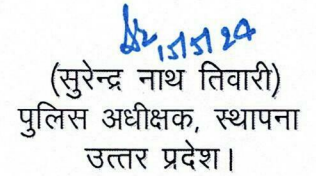 15/5/24
(सुरेन्द्र नाथ तिवारी)
पुलिस अधीक्षक, स्थापना
उत्तर प्रदेश।